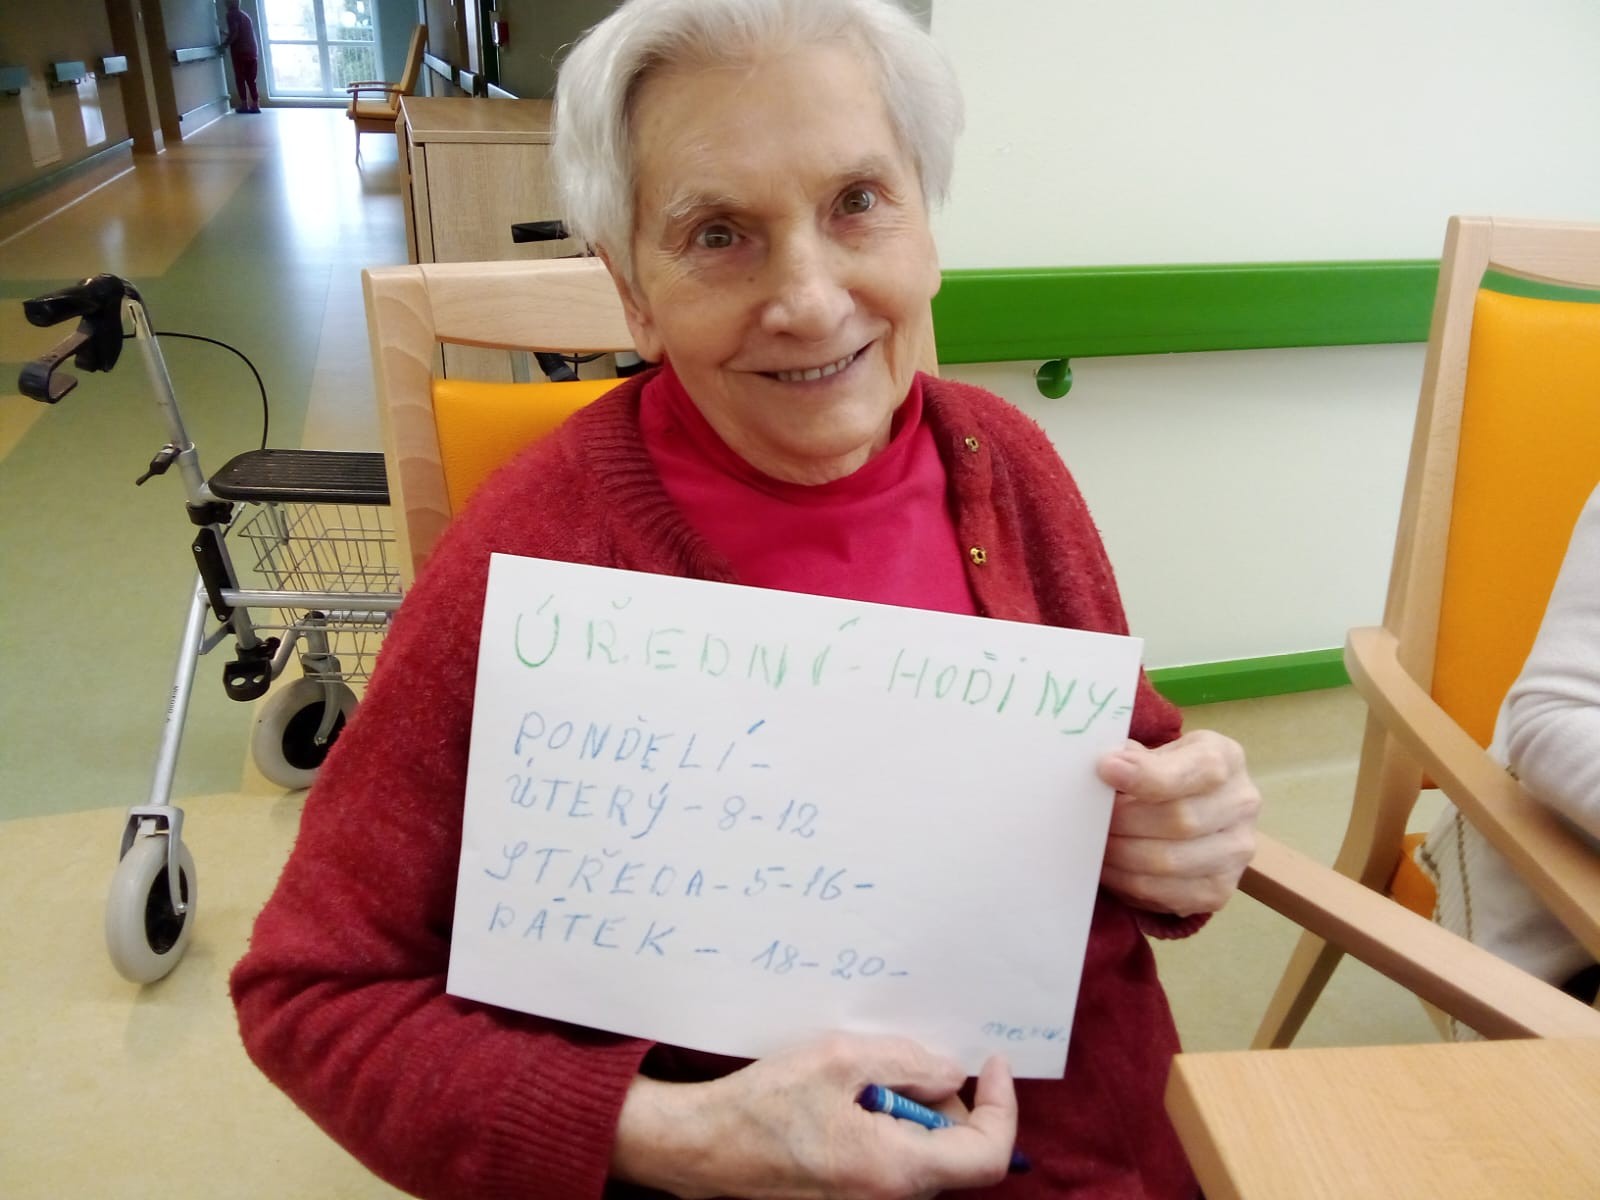 ÚŘEDNÍ - HODINY=
PONDĚLÍ -
ÚTERÝ - 8-12
STŘEDA - 5-16-
PÁTEK - 18-20-